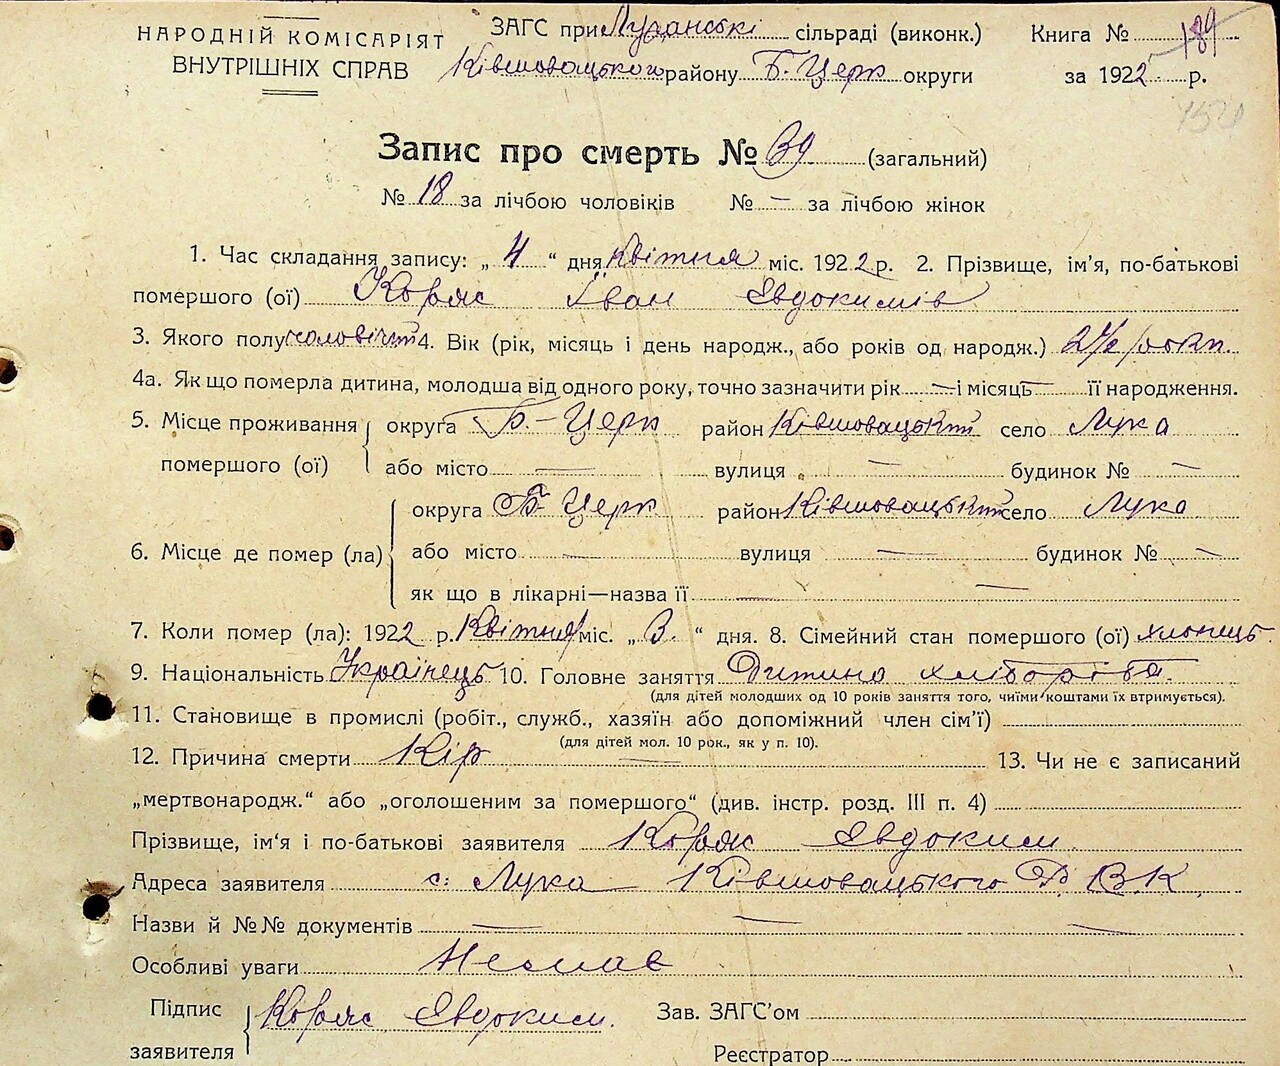 НАРОДНІЙ КОМІСАРІЯТ
ВНУТРІШНІХ СПРАВ
ЗАГС при Луганські сільраді (виконк.) Книга №
Ківшовацького району Б. Церк округи за 1922 р.
189
Запис про смерть № 39 (загальний)
№ 18 за лічбою чоловіків № — за лічбою жінок
1. Час складання запису: „ 4 “ дня квітня міс. 1922 р. 2. Прізвище, ім'я, по-батькові
помершого (ої) Коряк Іван Євдокимів
3. Якого полу чоловічт 4. Вік (рік, місяць і день народж., або років од народж.) 2½ рокт.
4а. Як що померла дитина, молодша від одного року, точно зазначити рік — і місяць — її народження.
5. Місце проживання помершого (ої) округа Б.-Церк район Ківшовацькт село Лука
або місто — вулиця — будинок № —
6. Місце де помер (ла) округа Б. Церк район Ківшовацькт село Лука
або місто — вулиця — будинок № —
як що в лікарні—назва її — —
7. Коли помер (ла): 1922 р. Квітня міс. „ 3. “ дня. 8. Сімейний стан помершого (ої) хлопець
9. Національність Українець 10. Головне заняття Дитина хлібороба
(для дітей молодших од 10 років заняття того, чиїми коштами їх втримується).
11. Становище в промислі (робіт., служб., хазяїн або допоміжний член сім'ї)
(для дітей мол. 10 рок., як у п. 10).
12. Причина смерти Кір — 13. Чи не є записаний
„мертвонародж.“ або „оголошеним за помершого“ (див. інстр. розд. III п. 4)
Прізвище, ім'я і по-батькові заявителя Коряк Євдоким
Адреса заявителя с. Лука Ківшовацького Р.В.К.
Назви й №№ документів — — —
Особливі уваги Немає
Підпис заявителя Коряк Євдоким.
Зав. ЗАГС'ом
Реєстратор